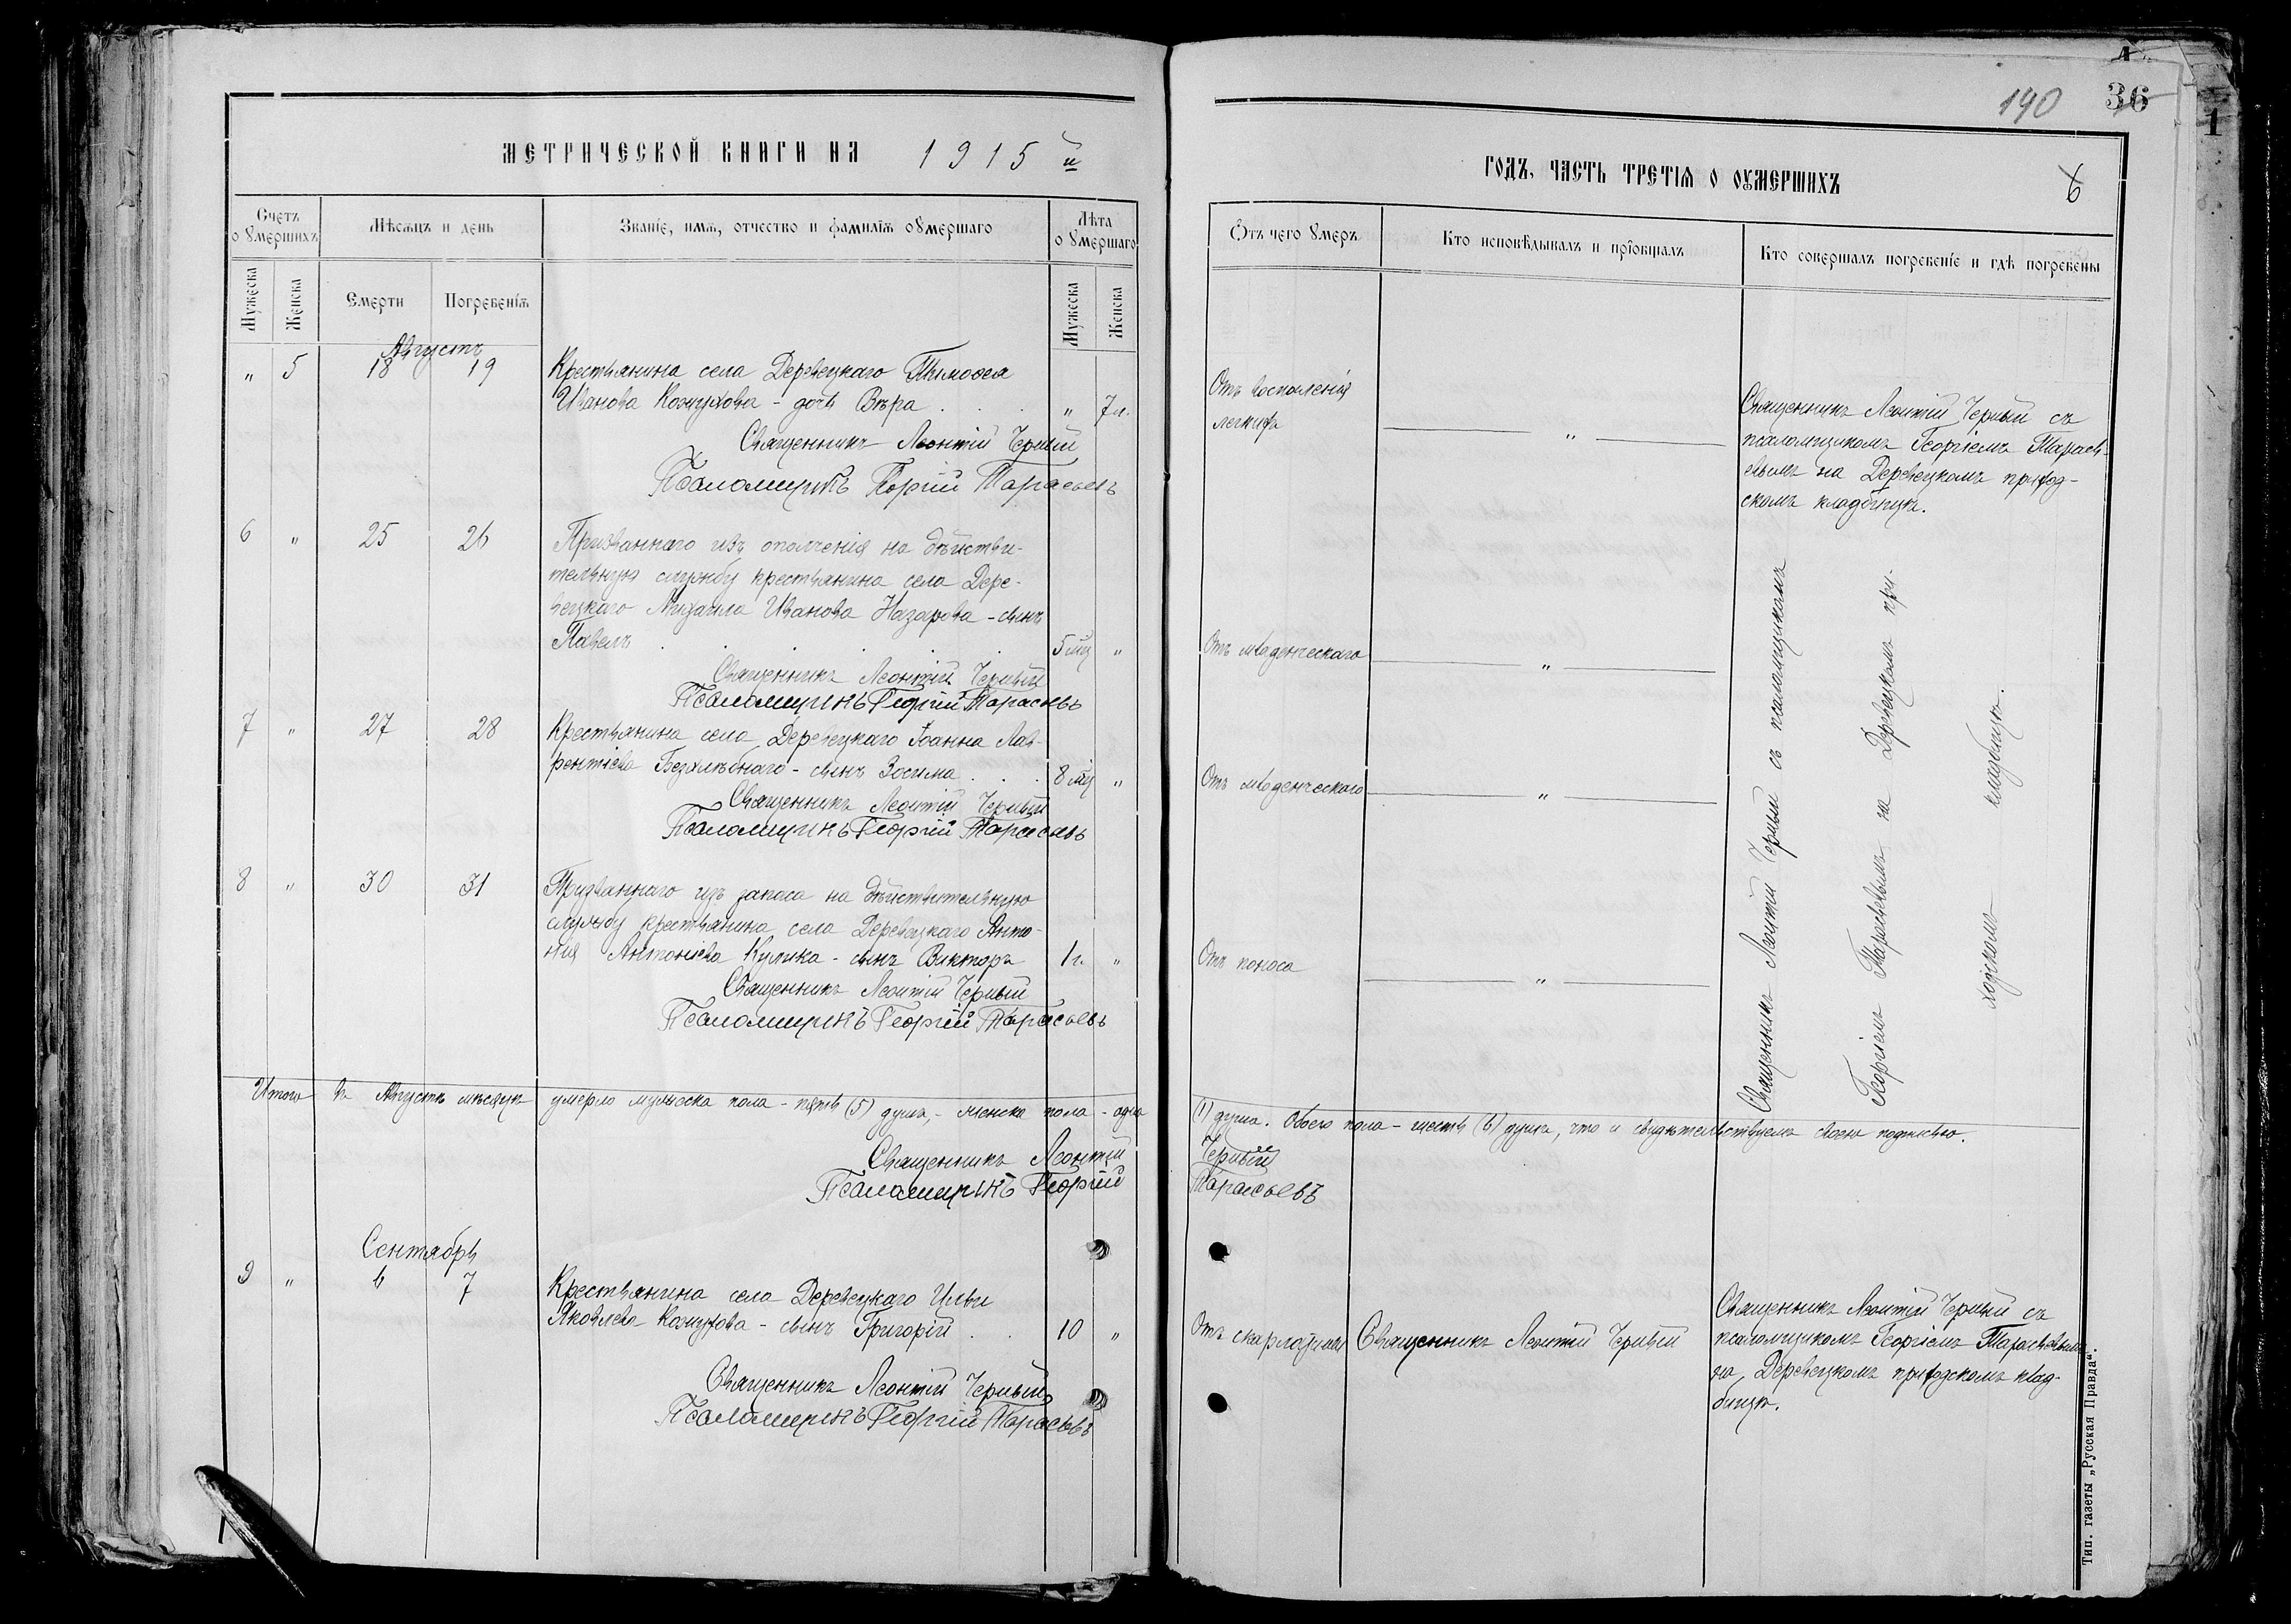 МЕТРИЧЕСКОЙ КНИГИ НА 1915 й
Счетъ о умершихъ
Мѣсяцъ и день
Званіе, имя, отчество и фамилія умершаго
Лѣта о умершаго
Мужеска
Женска
Смерти
Погребенія
Мужеска
Женска
Августъ
" 5 18 19 Крестьянина села Деревецкаго Тимоѳея
Иванова Кожухова - дочь Вѣра . . . " 7 л.
Священникъ Леонтій Черный
Псаломщикъ Георгій Тарасьевъ
6 " 25 26 Призваннаго изъ ополченія на дѣйстви-
тельную службу крестьянина села Дере-
вецкаго Михаила Иванова Назарова - сынъ
Павелъ . . . . . 5 мц "
Священникъ Леонтій Черный
Псаломщикъ Георгій Тарасьевъ
7 " 27 28 Крестьянина села Деревецкаго Іоанна Лав-
рентіева Безхлѣбнаго - сынъ Зосима . . . 8 мц "
Священникъ Леонтій Черный
Псаломщикъ Георгій Тарасьевъ
8 " 30 31 Призваннаго изъ запаса на дѣйствительную
службу крестьянина села Деревецкаго Анто-
нія Антоніева Кулика - сынъ Викторъ 1 г. "
Священникъ Леонтій Черный
Псаломщикъ Георгій Тарасьевъ
Итого въ Августѣ мѣсяцѣ умерло мужеска пола - пять (5) душъ, - женска пола - одна
Священникъ Леонтій
Псаломщикъ Георгій
Сентябрь
9 " 6 7 Крестьянина села Деревецкаго Ильи
Яковлева Кожухова - сынъ Григорій . . 10 "
Священникъ Леонтій Черный
Псаломщикъ Георгій Тарасьевъ
190
36
1
ГОДЪ, ЧАСТЬ ТРЕТІЯ О ОУМЕРШИХЪ
6
Отъ чего умеръ
Кто исповѣдывалъ и пріобщалъ
Кто совершалъ погребеніе и гдѣ погребены
Отъ воспаленія
легкихъ
"
Священникъ Леонтій Черный съ
псаломщикомъ Георгіемъ Тарась-
евымъ на Деревецкомъ приход-
скомъ кладбищѣ.
Отъ младенческаго "
Отъ младенческаго "
Отъ поноса "
Священникъ Леонтій Черный съ псаломщикомъ
Георгіемъ Тарасьевымъ на Деревецкомъ при-
ходскомъ кладбищѣ.
(1) душа. Обоего пола - шесть (6) душъ, что и свидѣтельствуемъ своею подписью.
Черный
Тарасьевъ
Отъ скарлатины Священникъ Леонтій Черный
Священникъ Леонтій Черный съ
псаломщикомъ Георгіемъ Тарасьевымъ
на Деревецкомъ приходскомъ клад-
бищѣ.
Тип. газеты „Русская Правда“.